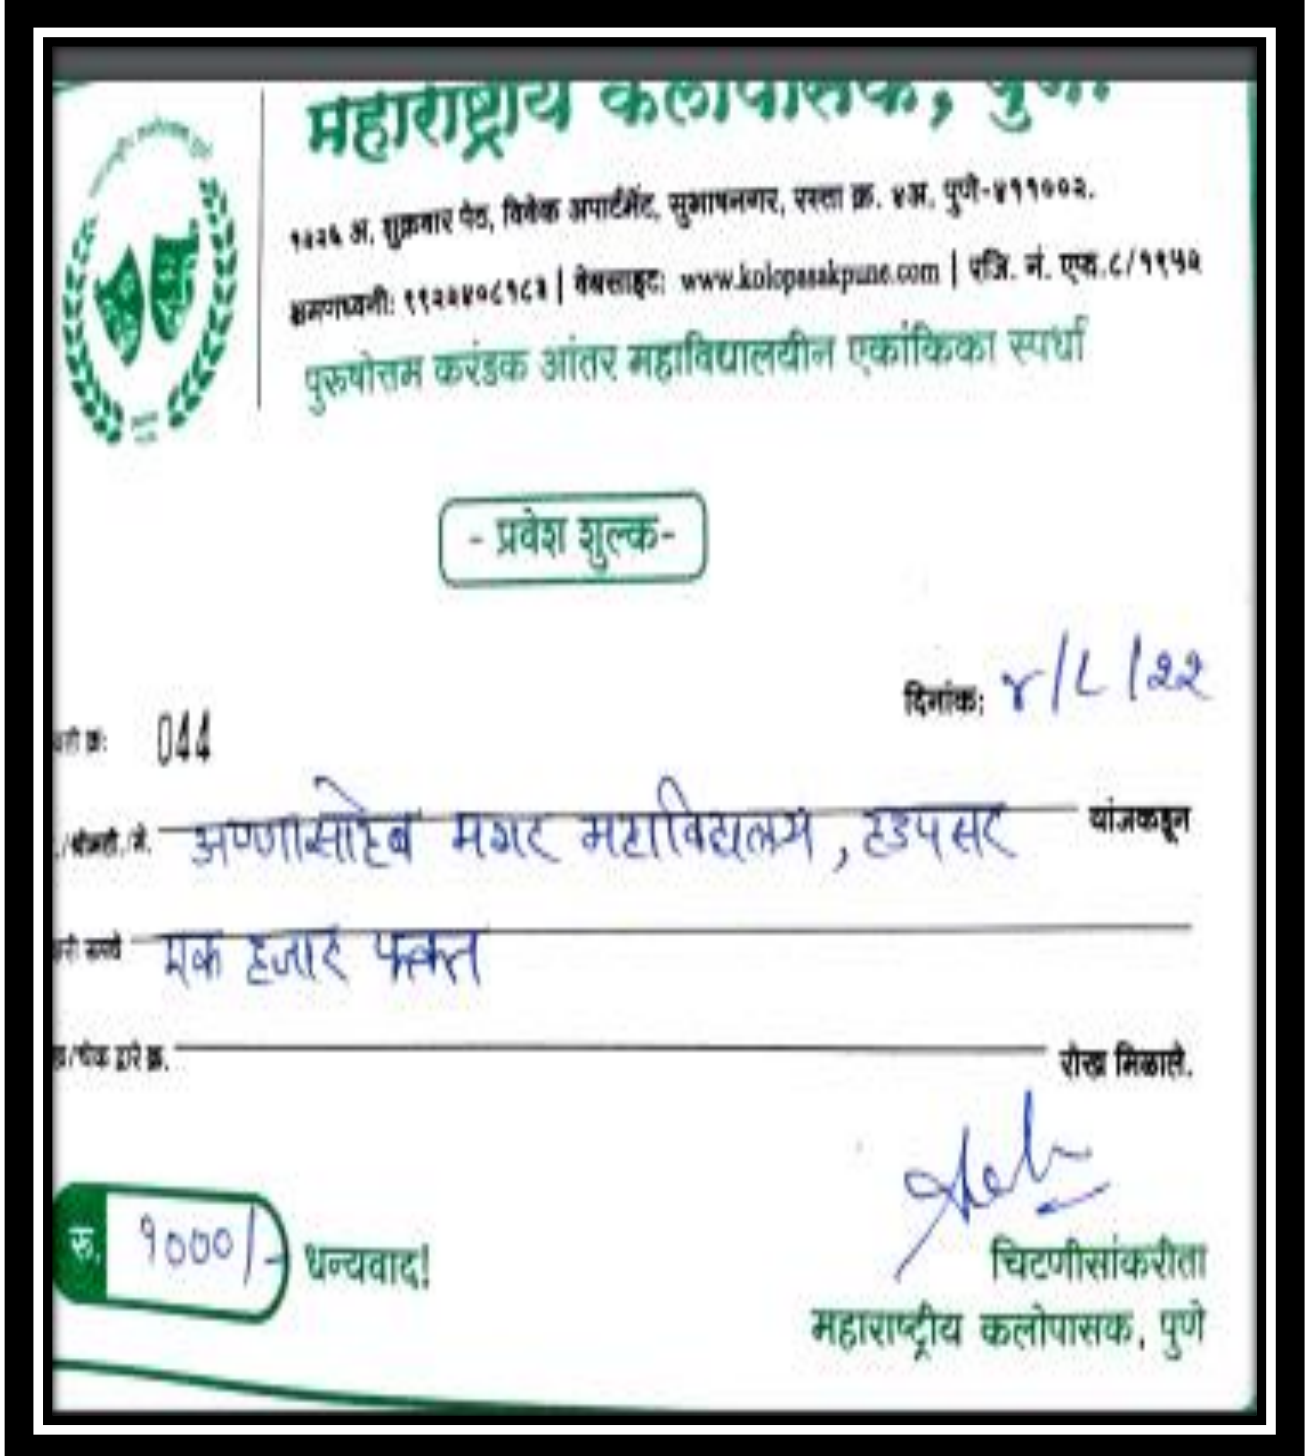 महाराष्ट्रीय कलोपासक, पुणे.
अ, शुक्रवार पेठ, विवेक अपार्टमेंट, सुभाषनगर, रस्ता क्र. ४अ, पुणे-४११००२.
वेबसाइट: www.kolopasakpune.com | रजि. नं. एफ.८/१९५२
पुरुषोत्तम करंडक आंतर महाविद्यालयीन एकांकिका स्पर्धा
- प्रवेश शुल्क-
दिनांक: ४/८/२२
044
अण्णासाहेब मगर महाविद्यालय, हडपसर यांजकडून
एक हजार फक्त
/चेक द्वारे क्र. रोख मिळाले.
रु. १०००/- धन्यवाद!
चिटणीसांकरीता
महाराष्ट्रीय कलोपासक, पुणे